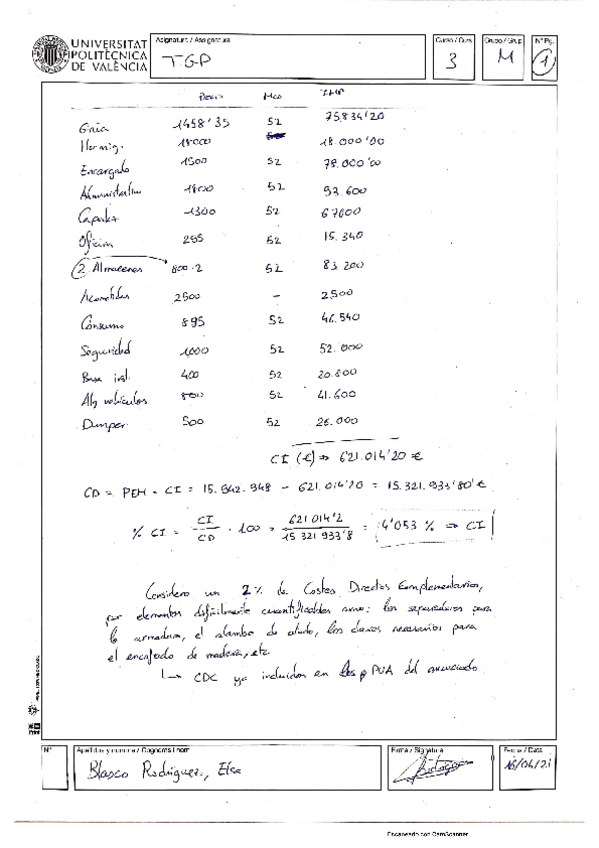 UNIVERSITAT POLITÈCNICA DE VALÈNCIA
Asignatura / Assignatura
TGP
Curso / Curs
3
Grupo / Grup
M
Nº Pg.
1
Precio Mes IMP
Grúa 1458'35 52 75.834'20
Hormig. 18000 18.000'00
Encargado 1500 52 78.000'00
Administrativo 1800 52 93.600
Capataz 1300 52 67600
Oficina 295 52 15.340
2 Almacenes 800·2 52 83.200
Acometidas 2500 - 2500
Consumo 895 52 46.540
Seguridad 1000 52 52.000
Base inst. 400 52 20.800
Alq vehículos 800 52 41.600
Dumper 500 52 26.000
CI (€) ⇒ 621.014'20 €
CD = PEM - CI = 15.942.948 - 621.014'20 = 15.321.933'80 €
% CI = CI / CD · 100 = 621014'2 / 15321933'8 = 4'053 % ⇒ CI
Considero un 2% de Costes Directos Complementarios,
por elementos difícilmente cuantificables como: los separadores para
la armadura, el alambre de atado, los clavos necesarios para
el encofrado de madera, etc.
↳ CDC ya incluidos en los PUA del enunciado
Nº
Apellidos y nombre / Cognoms i nom
Blasco Rodríguez, Elsa
Firma / Signatura
Fecha / Data
16/04/21
Escaneado con CamScanner